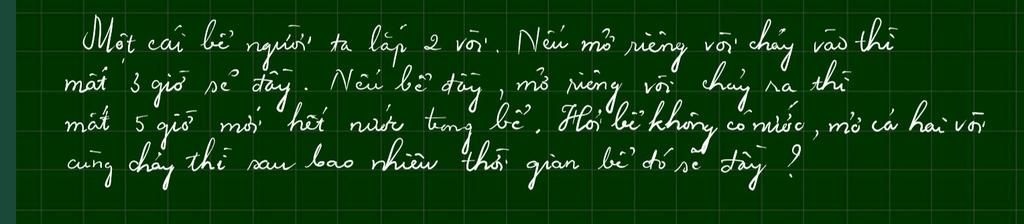 Một cái bể người ta lắp 2 vòi. Nếu mở riêng vòi chảy vào thì
mất 3 giờ sẽ đầy. Nếu bể đầy, mở riêng vòi chảy ra thì
mất 5 giờ mới hết nước trong bể. Hỏi bể không có nước, mở cả hai vòi
cùng chảy thì sau bao nhiêu thời gian bể đó sẽ đầy ?